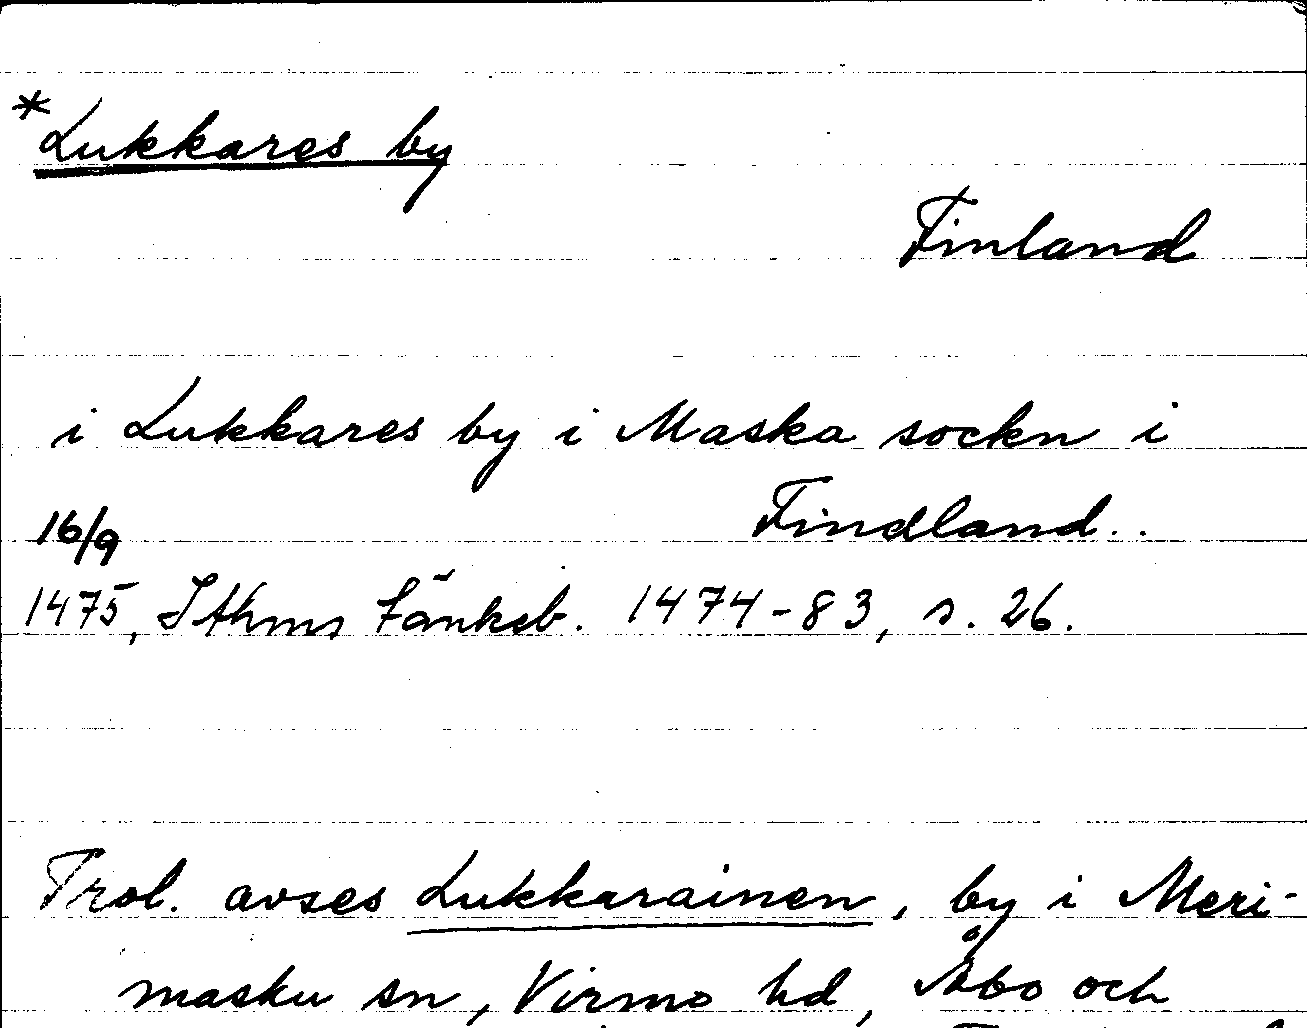 *Lukkares by
Finland
i Lukkares by i Maska sockn i
Findland..
16/9
1475, Sthms Tänkeb. 1474-83, s. 26.
Trol. avses Lukkarainen, by i Meri-
masku sn, Virmo hd, Åbo och